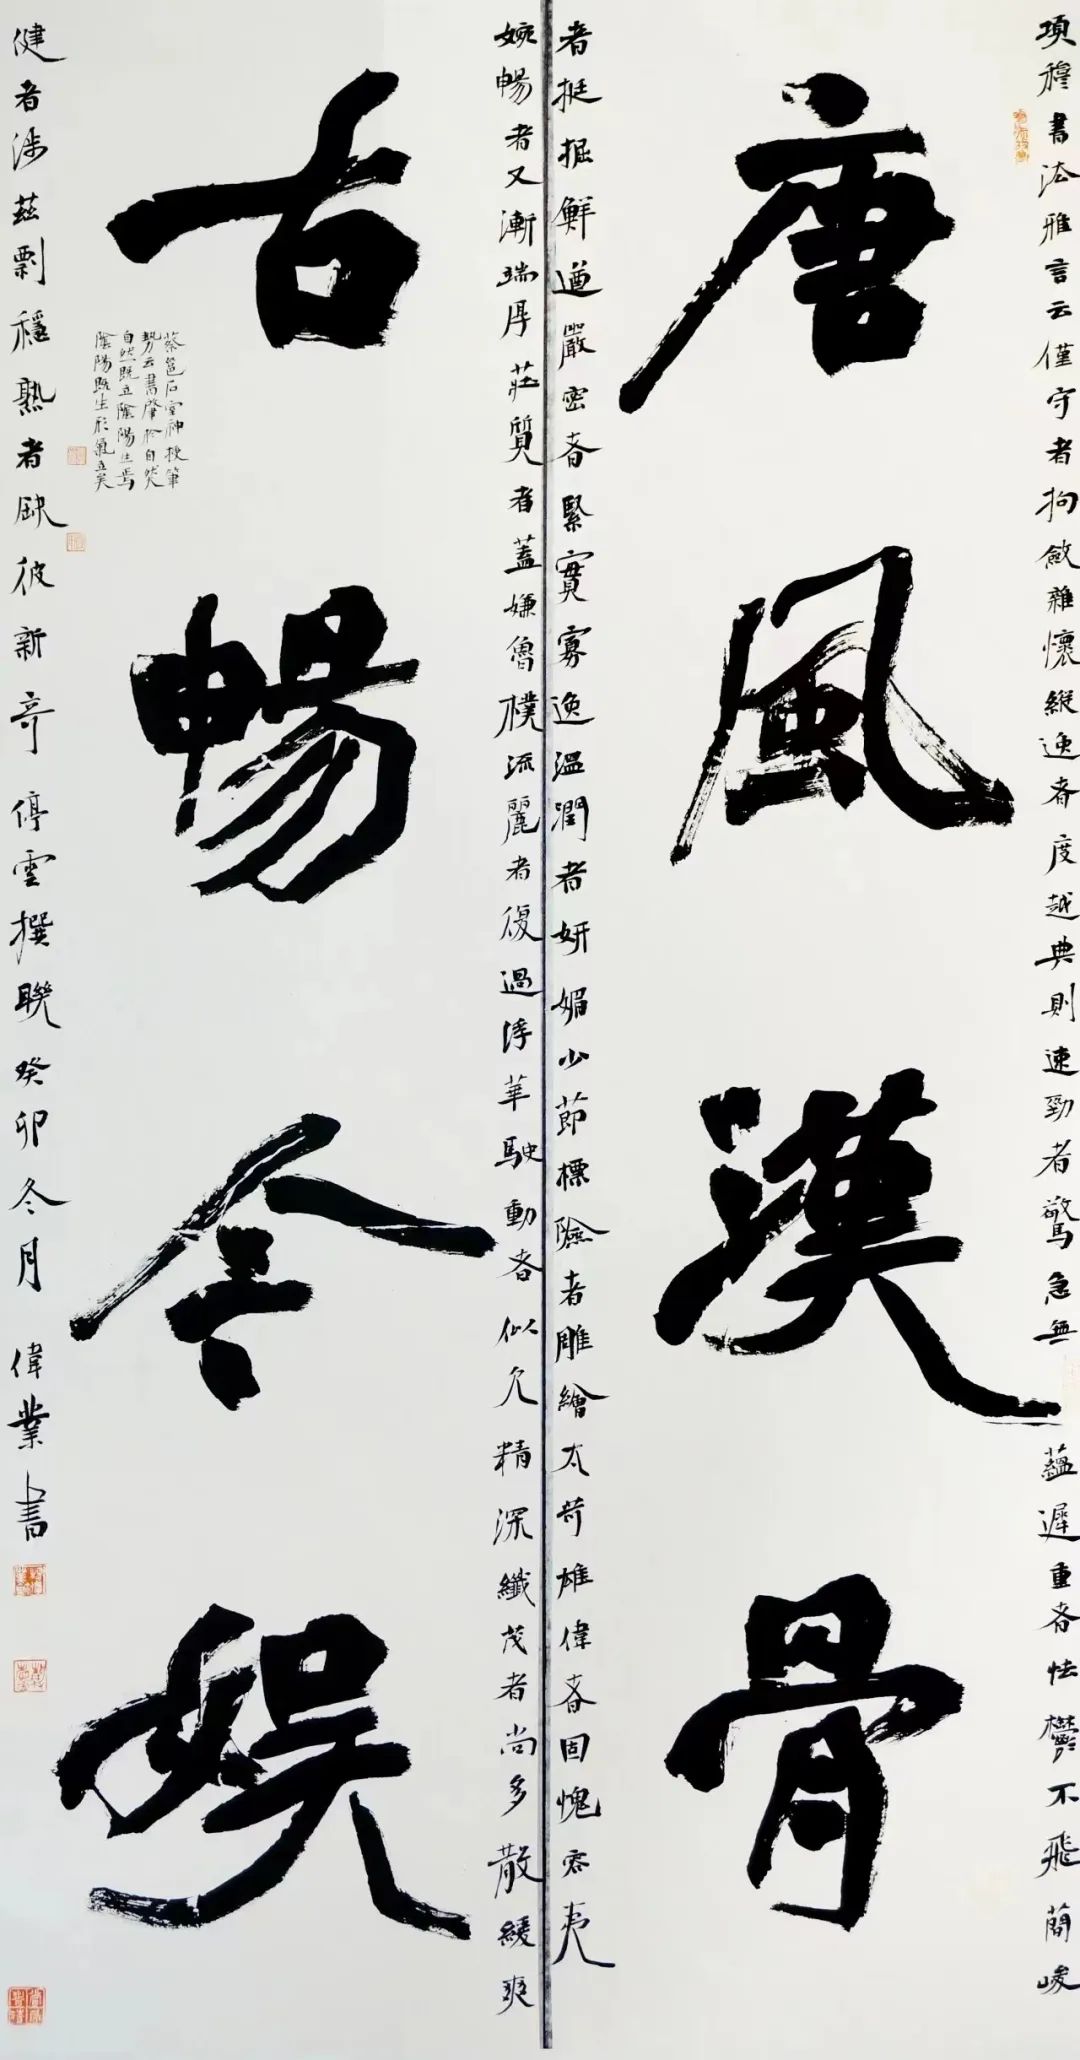 項穆書法雅言云僅守者拘斂雜懷縱逸者度越典則速勁者驚急無蘊遲重者怯鬱不飛簡峻
唐風漢骨
者挺掘鮮遒嚴密者緊實寡逸溫潤者妍媚少節標險者雕繪太苛雄偉者固愧容夷
婉暢者又漸端厚莊質者蓋嫌魯樸流麗者復過浮華駛動者似欠精深纖茂者尚多散緩爽
古暢今娛
蔡邕石室神授筆
勢云書肇於自然
自然既立陰陽生焉
陰陽既生形氣立矣
健者涉茲剽穩熟者缺彼新奇停雲撰聯癸卯冬月偉業書